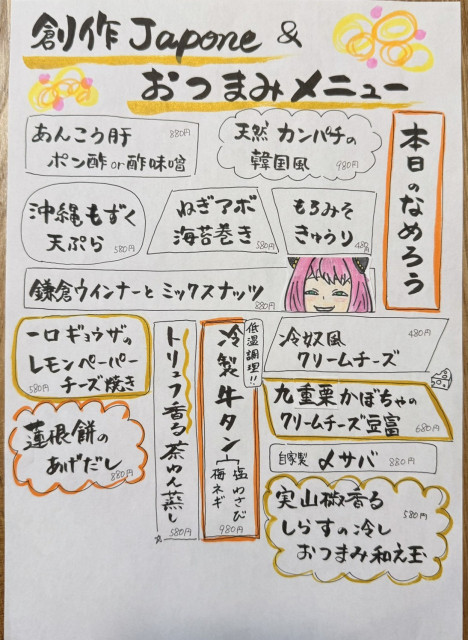 創作Japone &
おつまみメニュー
本日のなめろう
あんこう肝 880円
ポン酢or酢味噌
天然 カンパチの
韓国風 980円
沖縄もずく
天ぷら 580円
ねぎアボ
海苔巻き 580円
もろみそ
きゅうり 480円
鎌倉ウインナーとミックスナッツ 880円
一口ギョウザの
レモンペーパー
チーズ焼き 580円
蓮根餅の
あげだし 880円
トリュフ香る茶わん蒸し 580円
低温調理!!
冷製牛タン
塩わさび
梅ネギ
980円
冷奴風 480円
クリームチーズ
九重栗かぼちゃの
クリームチーズ豆富 680円
自家製 〆サバ 880円
実山椒香る 580円
しらすの冷し
おつまみ和え玉